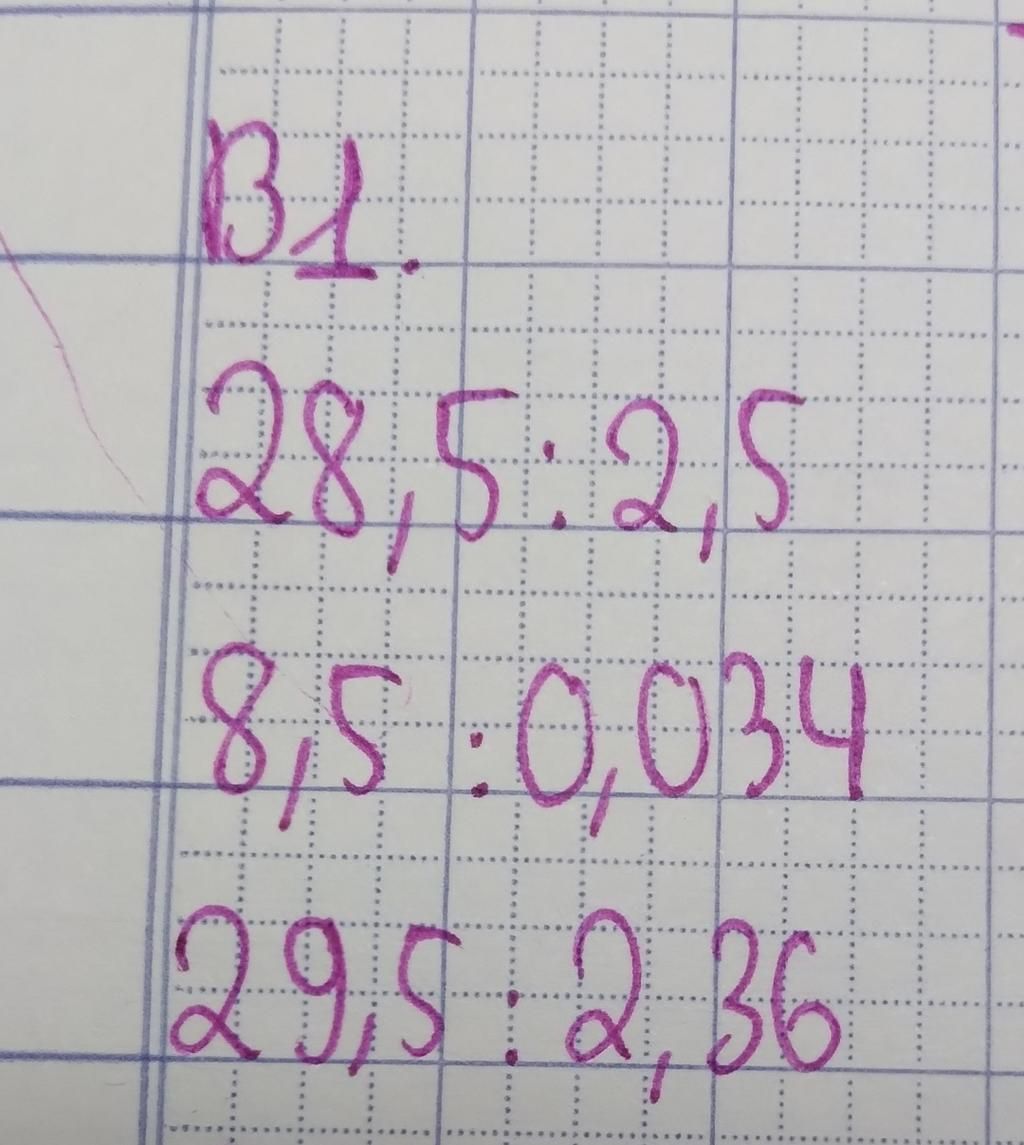 В1.
28,5:2,5
8,5:0,034
29,5:2,36